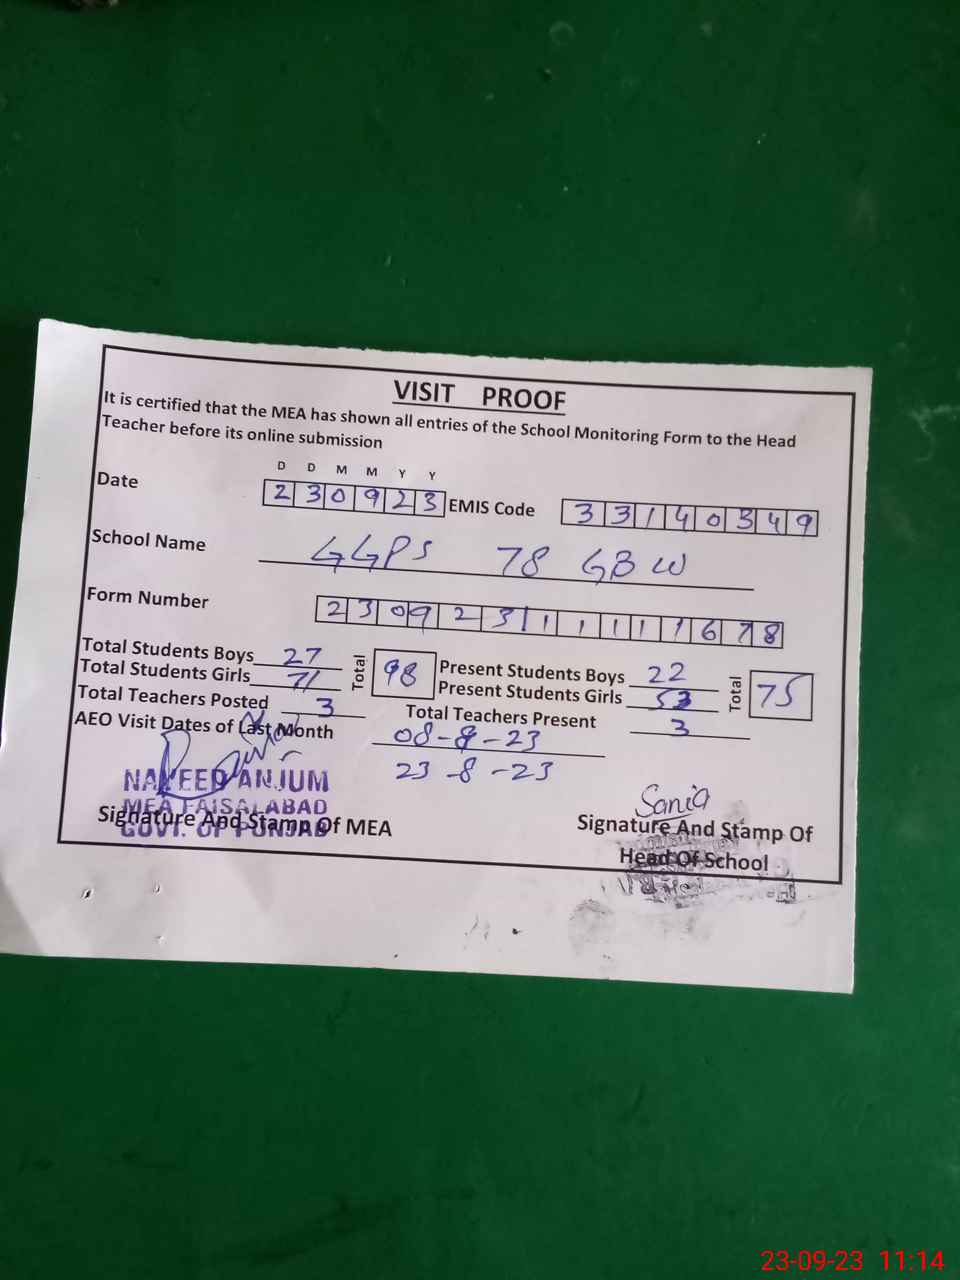 VISIT PROOF
It is certified that the MEA has shown all entries of the School Monitoring Form to the Head
Teacher before its online submission
D D M M Y Y
Date 230923 EMIS Code 33140349
School Name GGPS 78 GBW
Form Number 230923111111678
Total Students Boys 27 Total 98 Present Students Boys 22 Total 75
Total Students Girls 71 Present Students Girls 53
Total Teachers Posted 3 Total Teachers Present 3
AEO Visit Dates of Last Month 08-8-23
23-8-23
NAVEED ANJUM
MEA FAISALABAD
GOVT. OF PUNJAB
Signature And Stamp Of MEA
Sania
Signature And Stamp Of
Head Of School
23-09-23 11:14